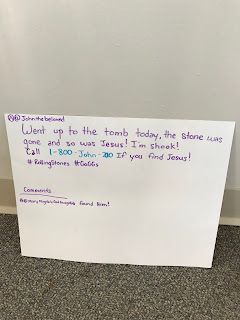 @Johnthebeloved
Went up to the tomb today, the stone was
gone and so was Jesus! I'm shook!
Call 1-800-John-200 If you find Jesus!
#RollingStones #GoGGs
Comments
found him!